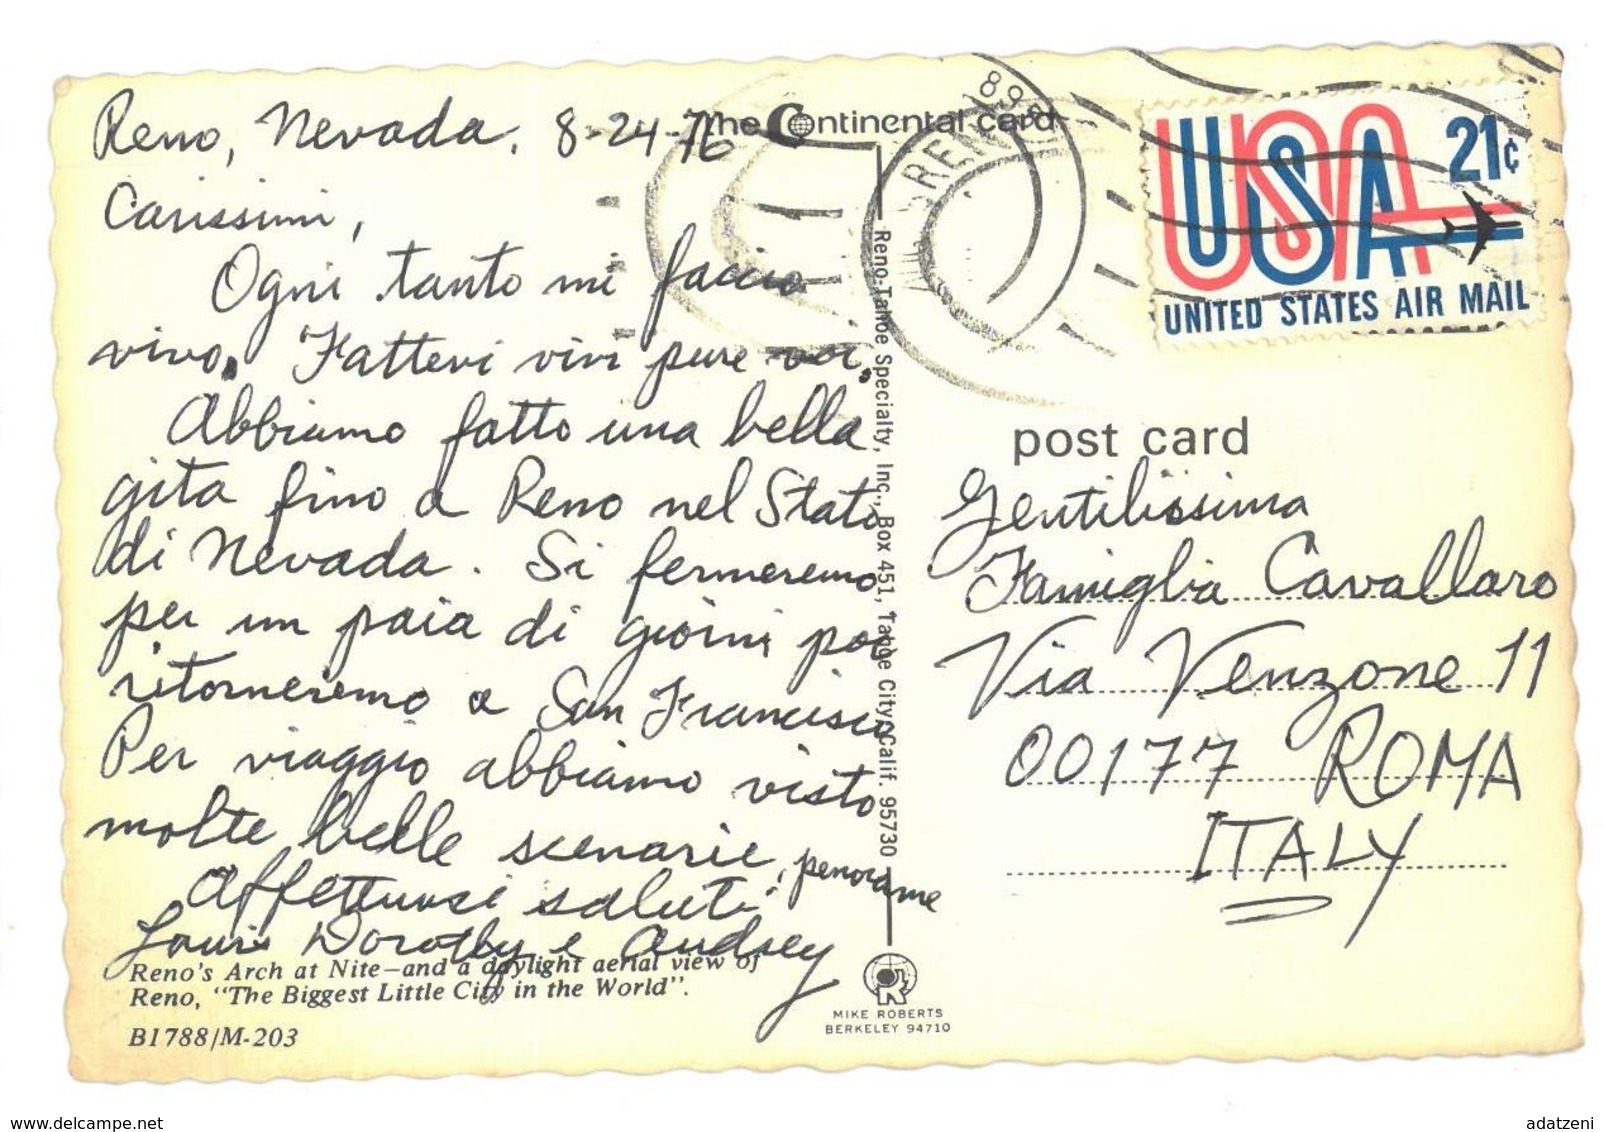 Reno, Nevada. 8-24-76
Carissimi,
Ogni tanto mi faccio
vivo. Fattevi vivi pure voi.
Abbiamo fatto una bella
gita fino a Reno nel Stato
di Nevada. Si fermeremo
per un paia di giorni poi
ritorneremo a San Francisco
Per viaggio abbiamo visto
molte belle scenarie, penorame
Affettuosi saluti
Louis Dorothy e Audrey
Reno's Arch at Nite—and a daylight aerial view of
Reno, "The Biggest Little City in the World".
B1788/M-203
The Continental card
Reno-Tahoe Specialty, Inc., Box 451, Tahoe City, Calif. 95730
MIKE ROBERTS
BERKELEY 94710
RENO
898
USA 21¢
UNITED STATES AIR MAIL
post card
Gentilissima
Famiglia Cavallaro
Via Venzone 11
00177 ROMA
ITALY
delcampe.net
adatzeni